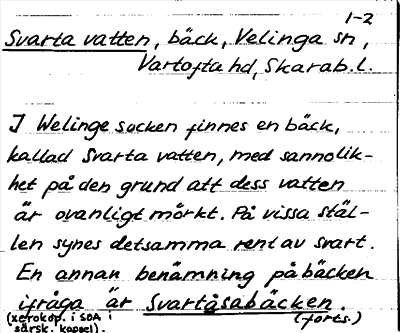 1-2
Svarta vatten, bäck, Velinga sn,
Vartofta hd, Skarab. l.
I Welinge socken finnes en bäck,
kallad Svarta vatten, med sannolik-
het på den grund att dess vatten
är ovanligt mörkt. På vissa stäl-
len synes detsamma rent av svart.
En annan benämning på bäcken
ifråga är Svartåsabäcken.
(xerokop. i SOA i (forts.)
särsk. kapsel).